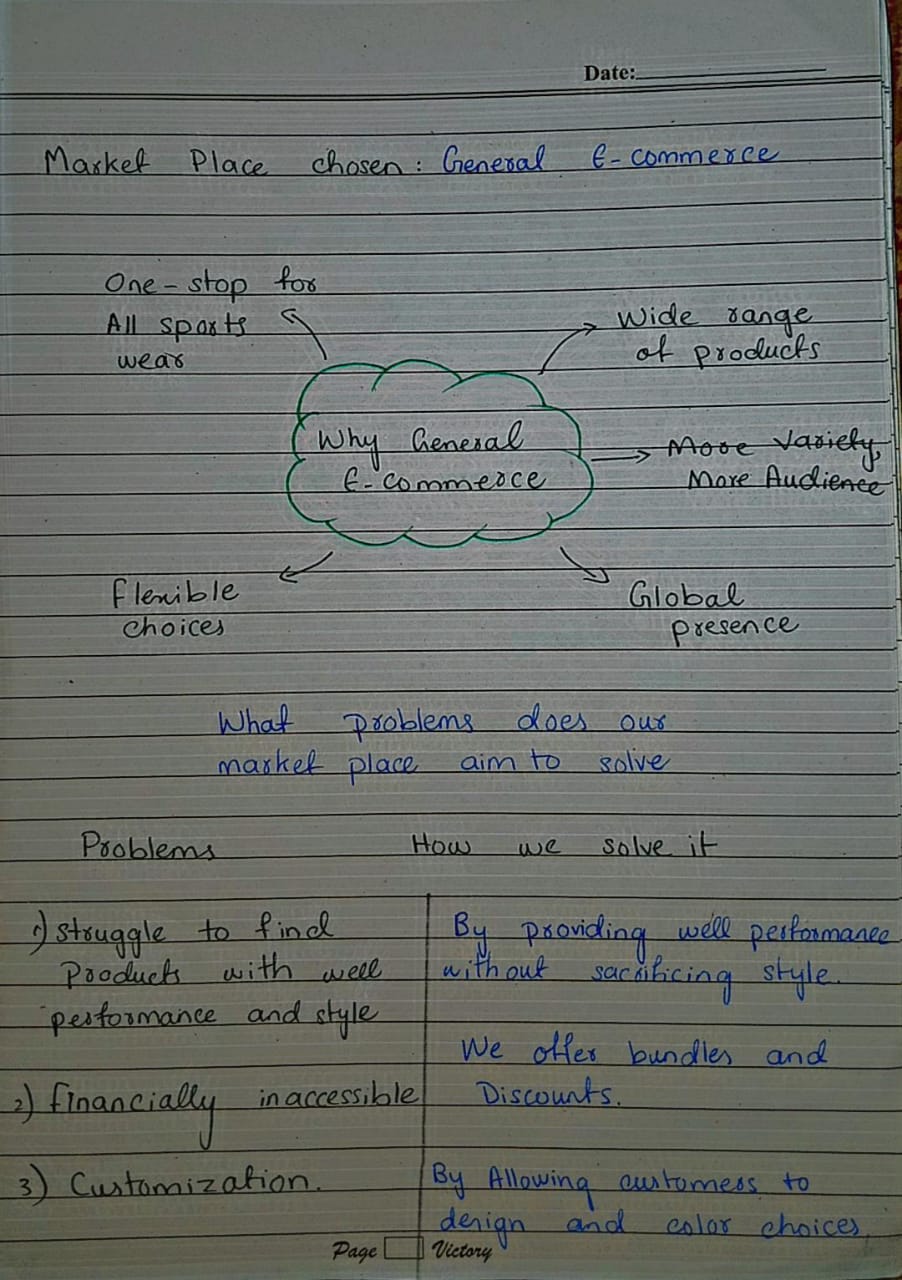 Date:
Market Place chosen: General E-commerce
One-stop for
All sports
wear
Wide range
of products
Why General
E-commerce
More Variety,
More Audience
Flexible
choices
Global
presence
What problems does our
market place aim to solve
Problems How we solve it
1) Struggle to find
Products with well
performance and style
By providing well performance
without sacrificing style.
2) Financially inaccessible
We offer bundles and
Discounts.
3) Customization.
By Allowing customers to
design and color choices,
Page Victory